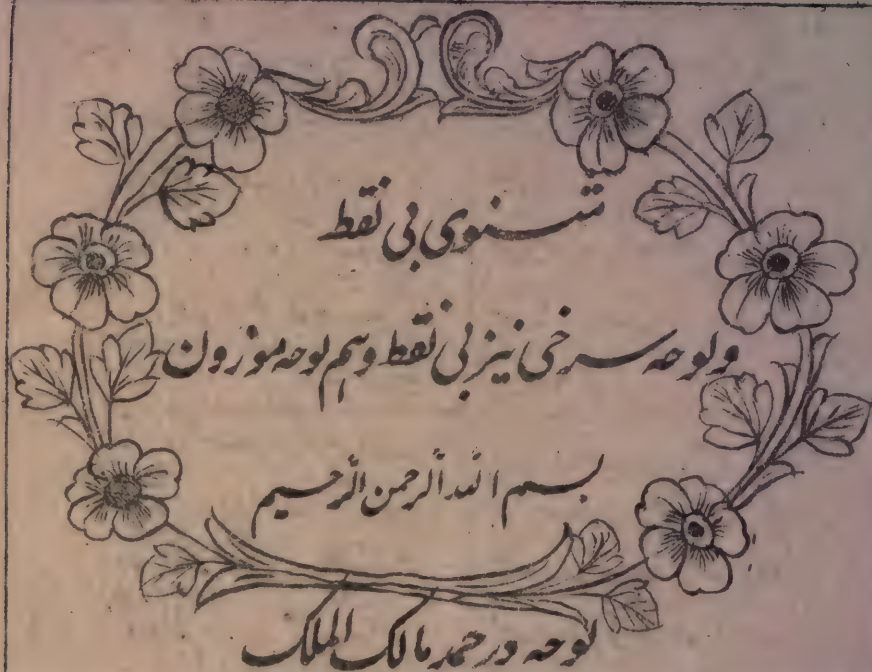 مثنوی بی نقط
ولوحه سرخی نیز بی نقط وهم لوحه موزون
بسم الله الرحمن الرحیم
لوحه در حمد مالک الملک